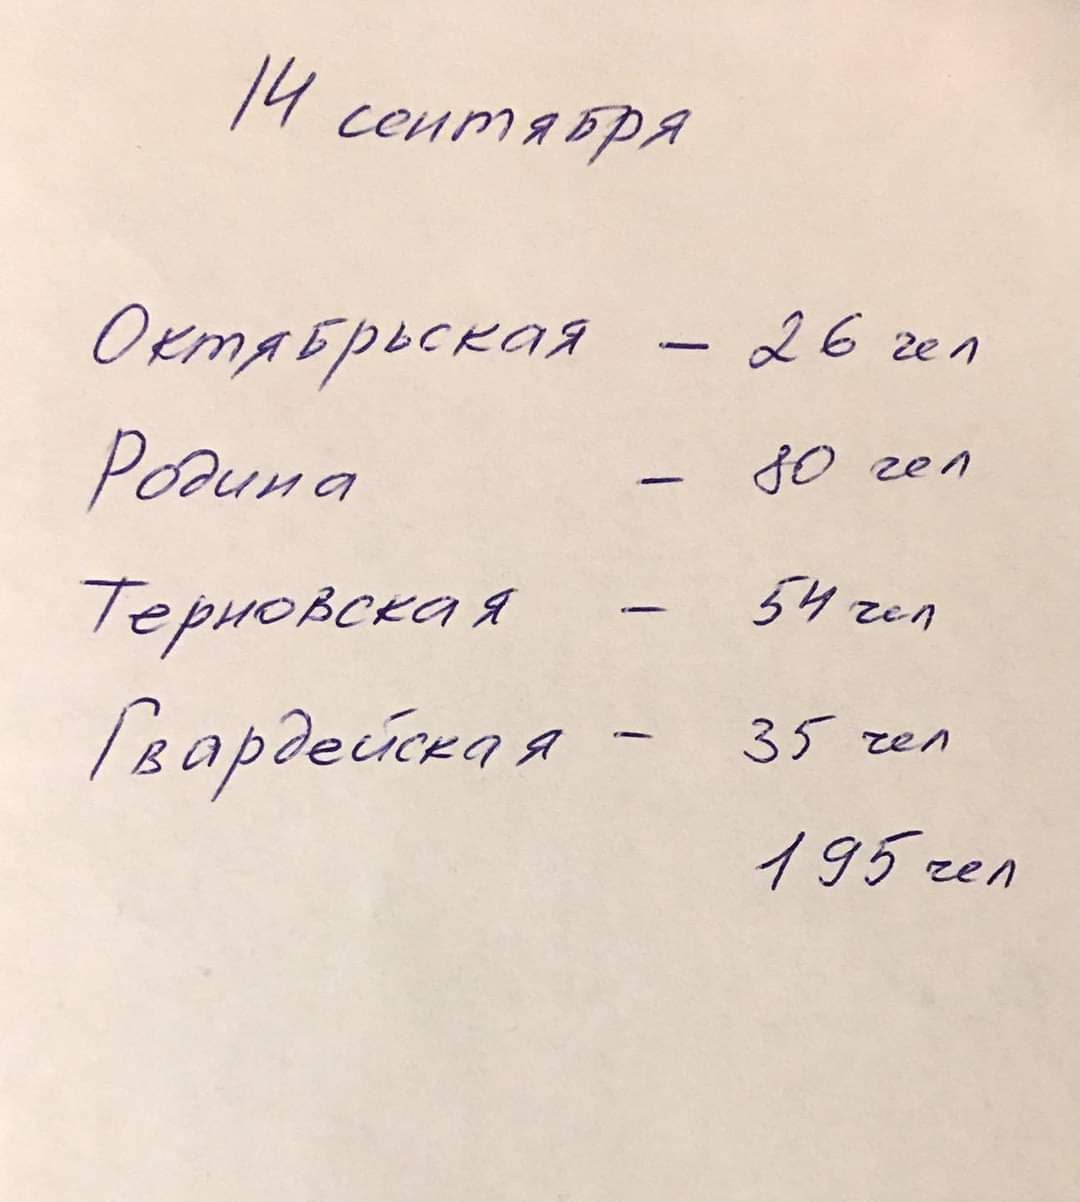 14 сентября
Октябрьская - 26 чел
Родина - 80 чел
Терновская - 54 чел
Гвардейская - 35 чел
195 чел